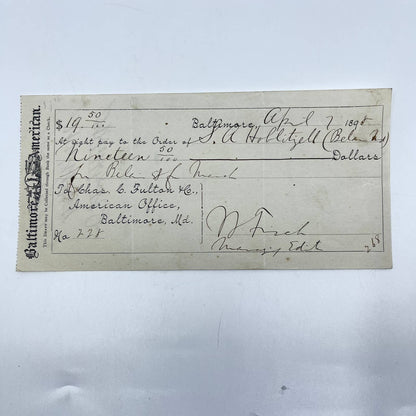 Baltimore American.
This Draft may be Collected through Bank the same as a Check.
$ 19 50/100 Baltimore, April 7 1898
At sight pay to the Order of S. A Hoblitzell (Belair Md)
Nineteen 50/100 Dollars
for Belair of March
To Chas. C. Fulton & Co.,
American Office,
Baltimore, Md.
No. 228
Managing Edit
268